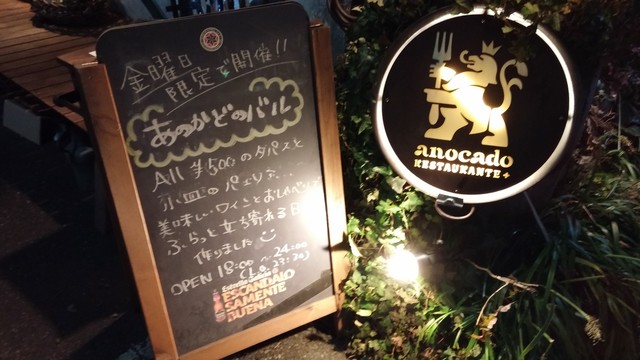 金曜日
限定で開催!!
あのかどのバル
All ¥500のタパスと
小皿のパエリア...
美味しいワインとおしゃべりで
ふらっと立ち寄れる日
作りました
OPEN 18:00 ~ 24:00
(Lo. 23:30)
Estrella Galicia
ESCANDALO
SAMENTE
BUENA
anocado
RESTAURANTE +